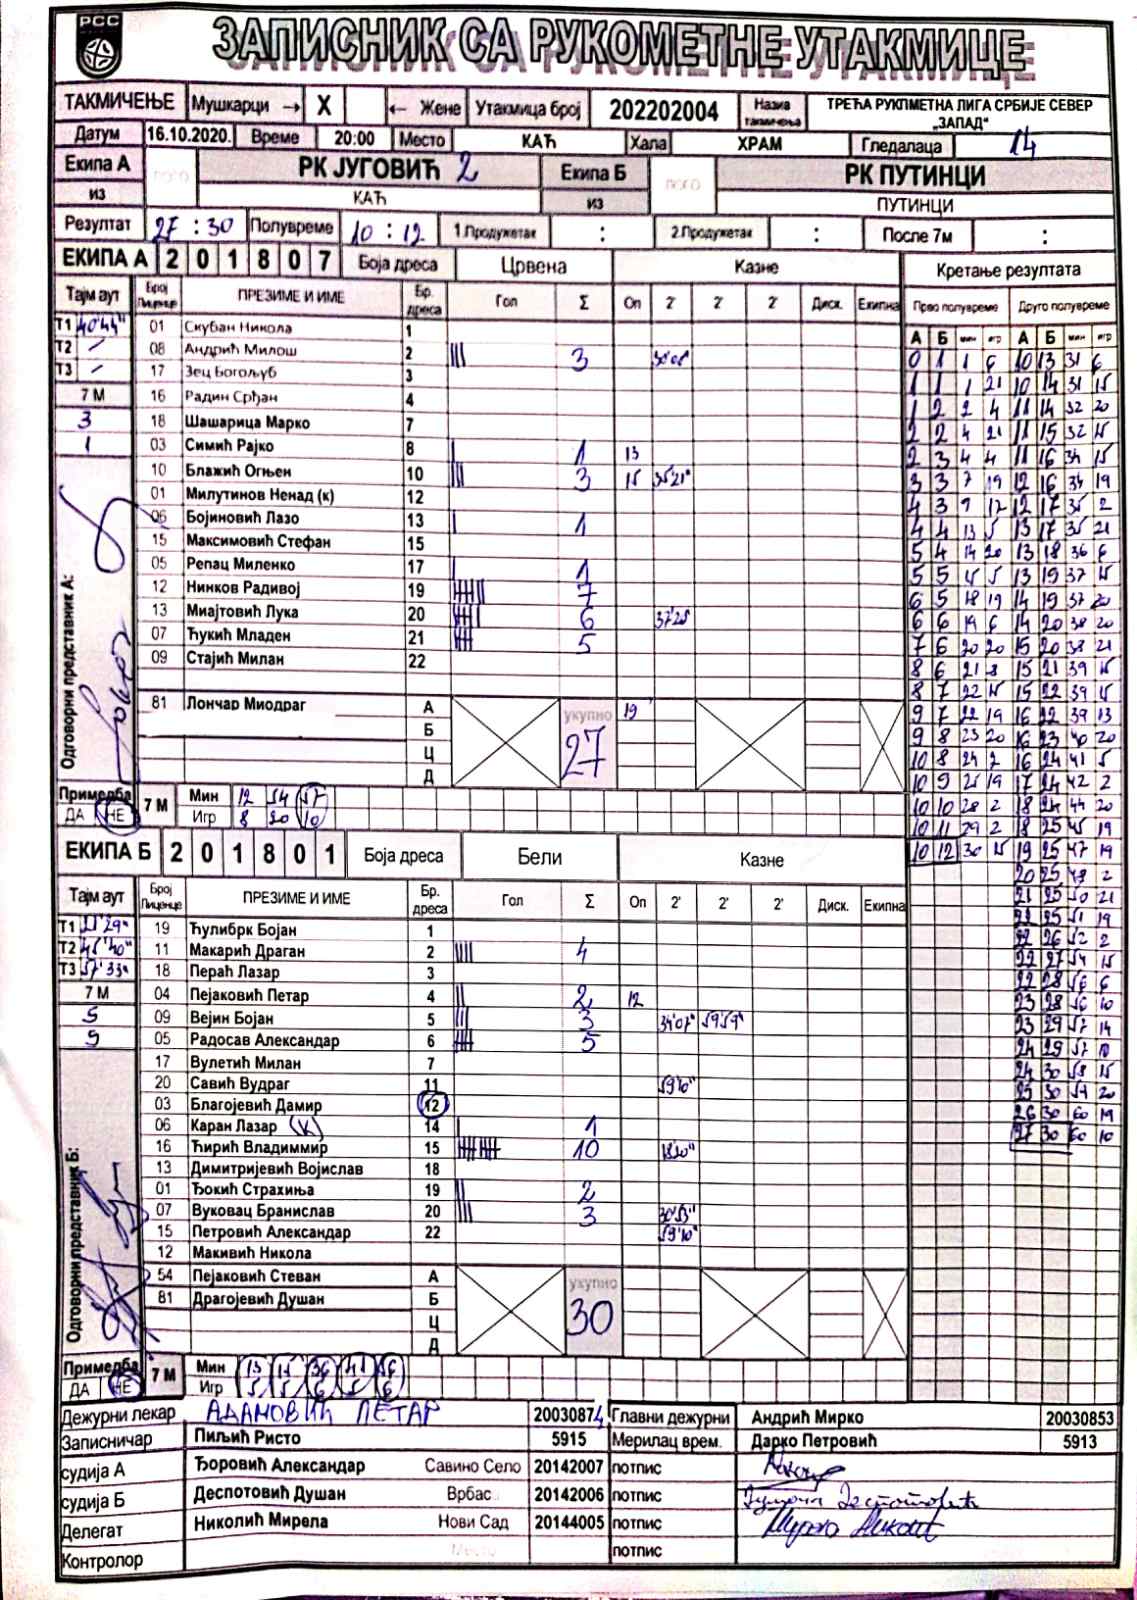 РСС
ЗАПИСНИК СА РУКОМЕТНЕ УТАКМИЦЕ
ТАКМИЧЕЊЕ Мушкарци → X ← Жене Утакмица број 202202004 Назив такмичења ТРЕЋА РУКПМЕТНА ЛИГА СРБИЈЕ СЕВЕР „ЗАПАД“
Датум 16.10.2020. Време 20:00 Место КАЋ Хала ХРАМ Гледалаца 14
Екипа А РК ЈУГОВИЋ 2 Екипа Б РК ПУТИНЦИ
из КАЋ из ПУТИНЦИ
Резултат 27 : 30 Полувреме 10 : 12 1.Продужетак : 2.Продужетак : После 7м :
ЕКИПА А 2 0 1 8 0 7 Боја дреса Црвена Казне
Тајм аут Број Лиценце ПРЕЗИМЕ И ИМЕ Бр. дреса Гол Σ Оп 2' 2' 2' Диск. Екипна
Т1 40'44" 01 Скубан Никола 1
Т2 / 08 Андрић Милош 2 3
Т3 / 17 Зец Богољуб 3
7 М 16 Радин Срђан 4
3 18 Шашарица Марко 7
1 03 Симић Рајко 8 1 13
10 Блажић Огњен 10 3 15 35'21"
01 Милутинов Ненад (к) 12
06 Бојиновић Лазо 13 1
15 Максимовић Стефан 15
05 Репац Миленко 17 1
12 Нинков Радивој 19 7
13 Миајтовић Лука 20 6
07 Ђукић Младен 21 5
09 Стајић Милан 22
81 Лончар Миодраг А 19
Б
Ц
Д
укупно 27
Одговорни представник А:
Примедба ДА НЕ
7 М Мин 12 54 57
Игр 8 20 10
ЕКИПА Б 2 0 1 8 0 1 Боја дреса Бели Казне
Тајм аут Број Лиценце ПРЕЗИМЕ И ИМЕ Бр. дреса Гол Σ Оп 2' 2' 2' Диск. Екипна
Т1 21'29" 19 Ћулибрк Бојан 1
Т2 45'40" 11 Макарић Драган 2 4
Т3 57'33" 18 Пераћ Лазар 3
7 М 04 Пејаковић Петар 4 2 12
5 09 Вејин Бојан 5 3 34'07" 59'59"
5 05 Радосав Александар 6 5
17 Вулетић Милан 7
20 Савић Вудраг 11 59'10"
03 Благојевић Дамир 12
06 Каран Лазар (К) 14 1
16 Ћирић Владиммир 15 10 18'20"
13 Димитријевић Војислав 18
01 Ђокић Страхиња 19 2
07 Вуковац Бранислав 20 3 30'53"
15 Петровић Александар 22 59'10"
12 Макивић Никола
54 Пејаковић Стеван А
81 Драгојевић Душан Б
Ц
Д
укупно 30
Одговорни представник Б:
Примедба ДА НЕ
7 М Мин 13 15 36 41 56
Игр 5 5 6 5 6
Кретање резултата
Прво полувреме Друго полувреме
А Б мин игр А Б мин игр
0 1 1 6 10 13 31 6
1 1 1 21 10 14 31 15
1 2 2 4 11 14 32 20
2 2 4 21 11 15 32 15
2 3 4 4 11 16 34 15
3 3 7 19 12 16 34 19
4 3 9 17 12 17 35 2
4 4 13 5 13 17 35 21
5 4 14 20 13 18 36 6
5 5 15 5 13 19 37 15
6 5 18 19 14 19 37 20
6 6 19 6 14 20 38 20
7 6 20 20 15 20 38 21
8 6 21 8 15 21 39 15
8 7 22 15 15 22 39 15
9 7 22 19 16 22 39 13
9 8 23 20 16 23 40 20
10 8 24 2 16 24 41 5
10 9 25 19 17 24 42 2
10 10 28 2 18 24 44 20
10 11 29 2 18 25 45 19
10 12 30 15 19 25 47 19
20 25 49 2
21 25 50 21
22 25 51 19
22 26 52 2
22 27 54 15
22 28 56 6
23 28 56 10
23 29 57 14
24 29 57 10
24 30 58 15
25 30 59 20
26 30 60 19
27 30 60 10
Дежурни лекар АДАМОВИЋ ПЕТАР 20030874 Главни дежурни Андрић Мирко 20030853
Записничар Пиљић Ристо 5915 Мерилац врем. Дарко Петровић 5913
судија А Ђоровић Александар Савино Село 20142007 потпис
судија Б Деспотовић Душан Врбас 20142006 потпис
Делегат Николић Мирела Нови Сад 20144005 потпис
Контролор Место потпис